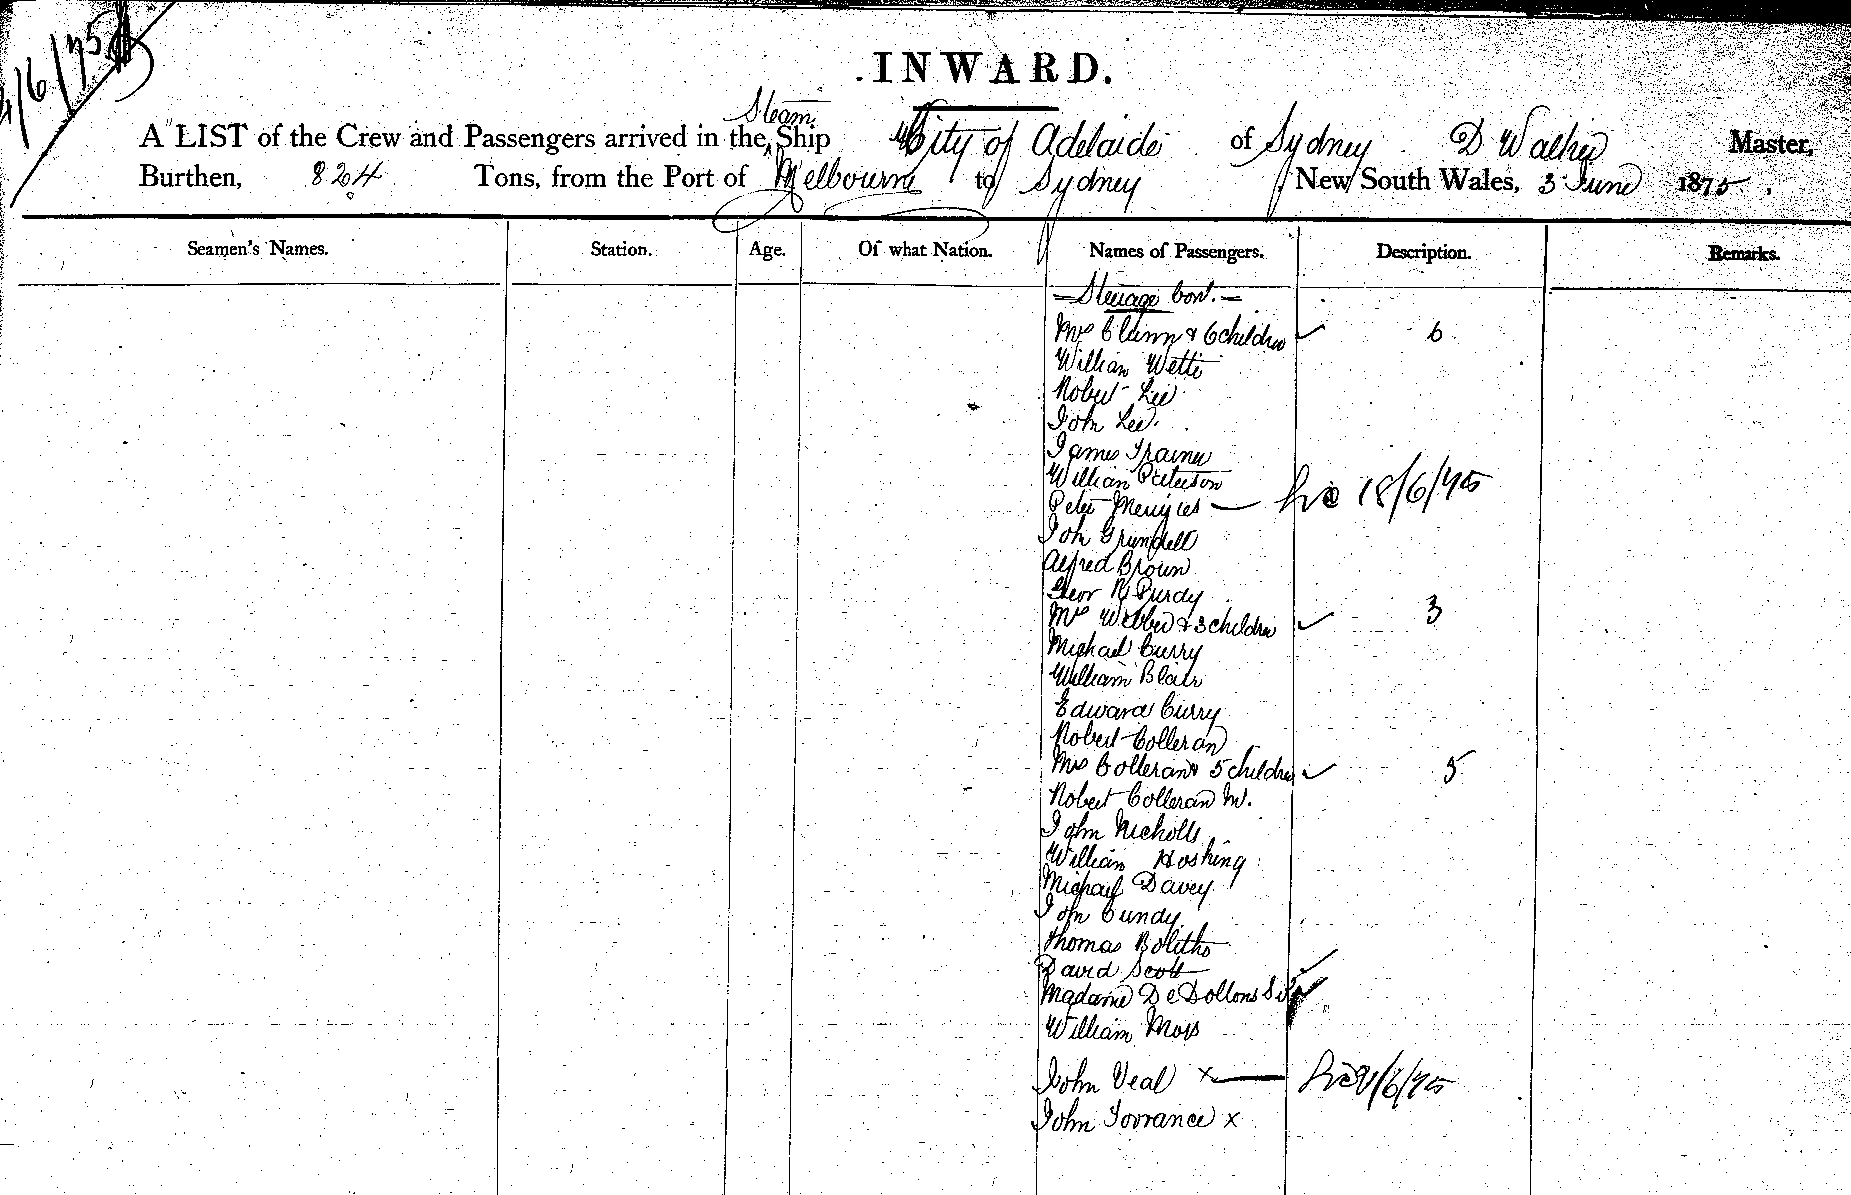 4/6/75
INWARD.
Steam
A LIST of the Crew and Passengers arrived in the Ship City of Adelaide of Sydney D Walker Master,
Burthen, 824 Tons, from the Port of Melbourne to Sydney New South Wales, 3 June 1875.
Seamen's Names. Station. Age. Of what Nation. Names of Passengers. Description. Remarks.
Steerage Cont.
Mrs Clunn & 6 children 6
William
Robert Lee
John Lee.
James Trainer
William Peterson
Peter Menzies 18/6/75
John Grundell
Alfred Brown
Geor R Purdy
Mrs Webber & 3 children 3
Michael Curry
William Blair
Edward Curry
Robert Colleran
Mrs Colleran & 5 children 5
Robert Colleran
John Nicholls
William Hosking
Michael Davey
John Cundy
Thomas Bolitho
David Scott
Madame De
William Moss
John Veal x /6/75
John Torrance x